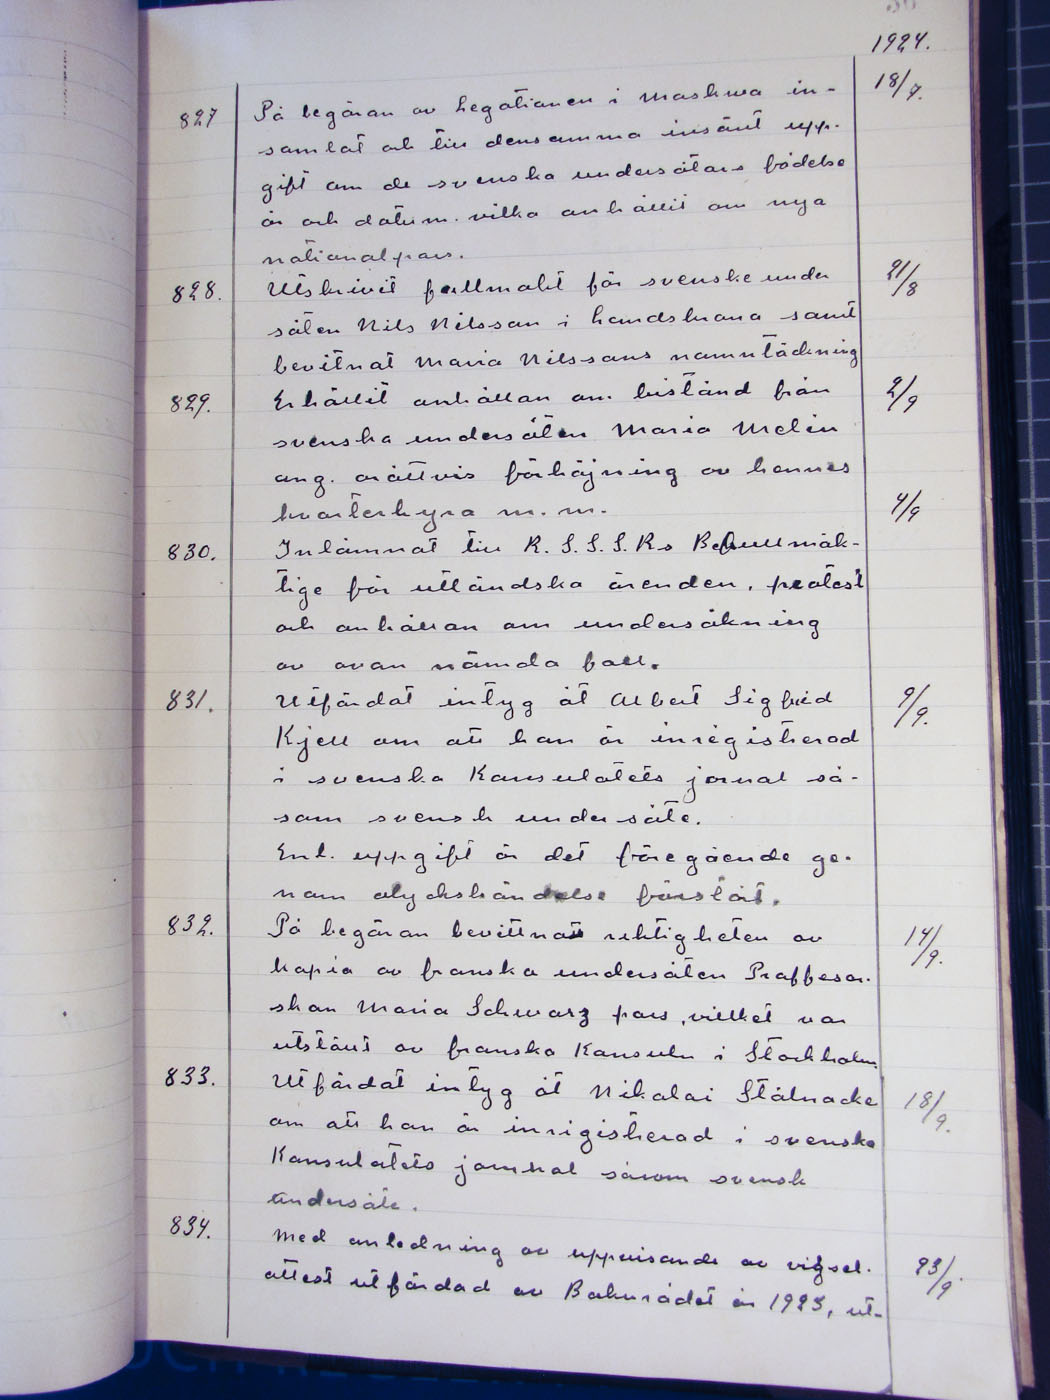 1924.
827 På begäran av Legationen i Maskwa in- 18/7.
samlat och till densamma insänt upp-
gift om de svenska undersåtars födelse
år och datum. vilka anhållit om nya
nationalpass.
828. Utskrivit fullmakt för svenske under 21/8
såten Nils Nilsson i Landskrona samt
bevitnat Maria Nilssons namntäckning
829. Erhållit anhållan om bistånd från 2/9
svenska undersåten Maria Melin
ang. orättvis förhöjning av hennes
kvarterhyra m.m. 4/9
830. Inlämnat till R.S.S.S.Rs Befullmäk-
tige för utländska ärenden, protest
och anhållan om undersökning
av ovan nämda fall.
831. Utfärdat intyg åt Albert Sigfrid 9/9.
Kjell om att han är inregistrerad
i svenska Konsulatets jornal så-
som svensk undersåte.
Enl. uppgift är det föregående ge-
nom olyckshändelse förstört.
832. På begäran bevittnat riktigheten av 14/9.
kopia av franska undersåten Proffesor-
skan Maria Schwarz pass, vilket var
utstänt av franska Konsuln i Stockholm
833. Utfärdat intyg åt Nikolai Stålnacke 18/9.
om att han är inrigistrerad i svenska
Konsulatets jornal såsom svensk
undersåte.
834. Med anledning av uppvisande av vigsel- 23/9.
attest utfärdad av Bakurådet år 1923, ut-